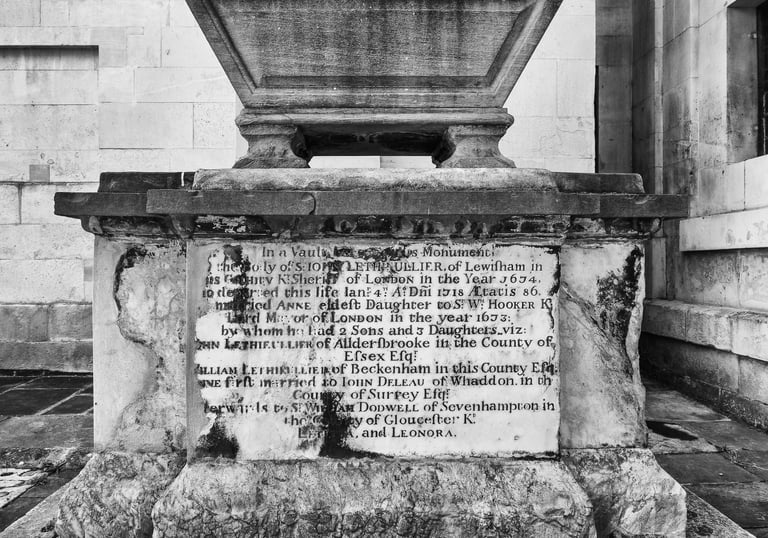 In a Vault this Monument
the Body of Sr. IOHN LETHIEULLIER, of Lewiſham in
County Kt. Sheriff of LONDON in the Year 1674,
departed this life Ian: 4th. Ao. Dñi 1718 Ætatis 86.
married ANNE eldeſt Daughter to Sr. Wm. HOOKER Kt.
Lord Mayor of LONDON in the year 1673:
by whom he had 2 Sons and 3 Daughters, viz:
IOHN LETHIEULLIER of Alderſbrooke in the County of
Eſſex Eſqr.
WILLIAM LETHIEULLIER of Beckenham in this County Eſqr.
ANNE firſt married to IOHN DELEAU of Whaddon, in the
County of Surrey Eſqr.
afterwards to Sr. WILLIAM DODWELL of Sevenhampton in
the County of Glouceſter Kt.
and LEONORA.